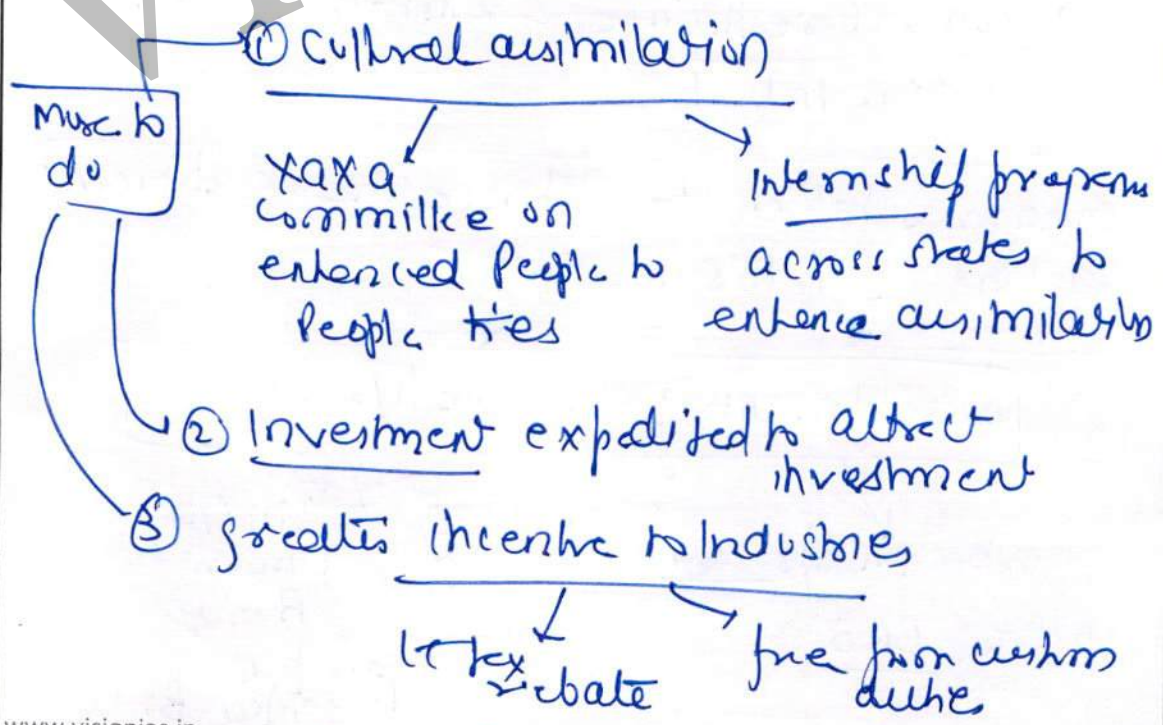 ① Cultural assimilation
Much to
do
Xaxa
committee on
enhanced People to
People ties
Internship programs
across states to
enhance assimilation
② Investment expedited to attract
investment
③ greater incentive to Industries
tax
rebate
free from customs
duties
www.visionias.in